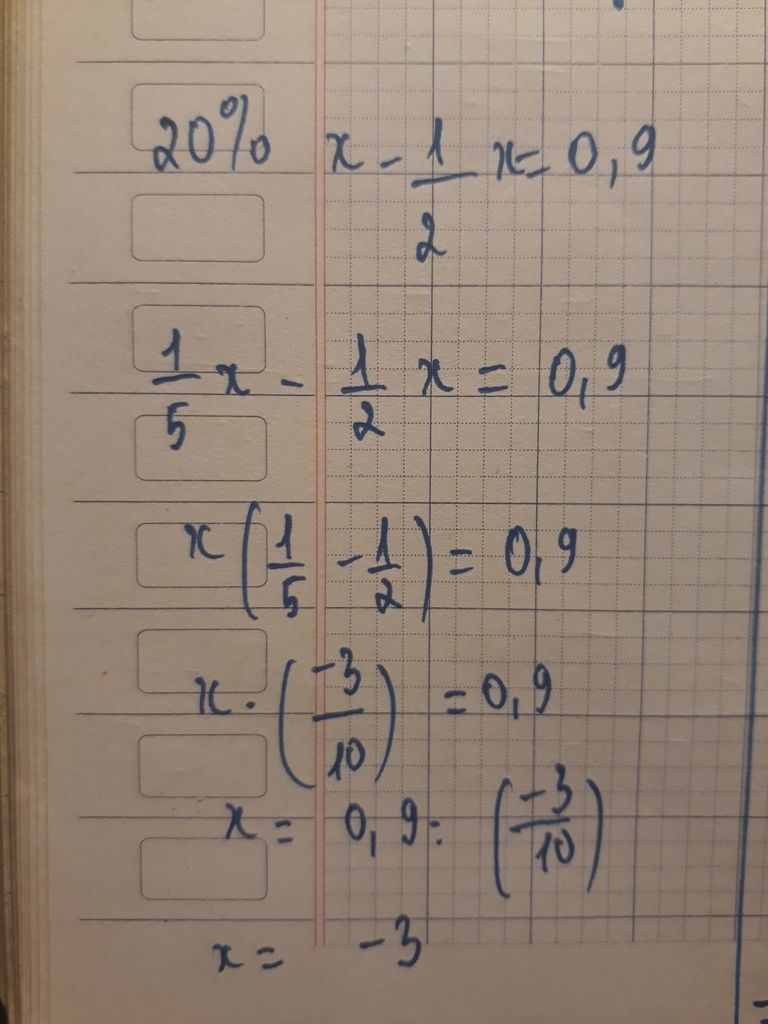 20% x - 1/2 x = 0,9
1/5 x - 1/2 x = 0,9
x (1/5 - 1/2) = 0,9
x . (-3/10) = 0,9
x = 0,9 : (-3/10)
x = -3